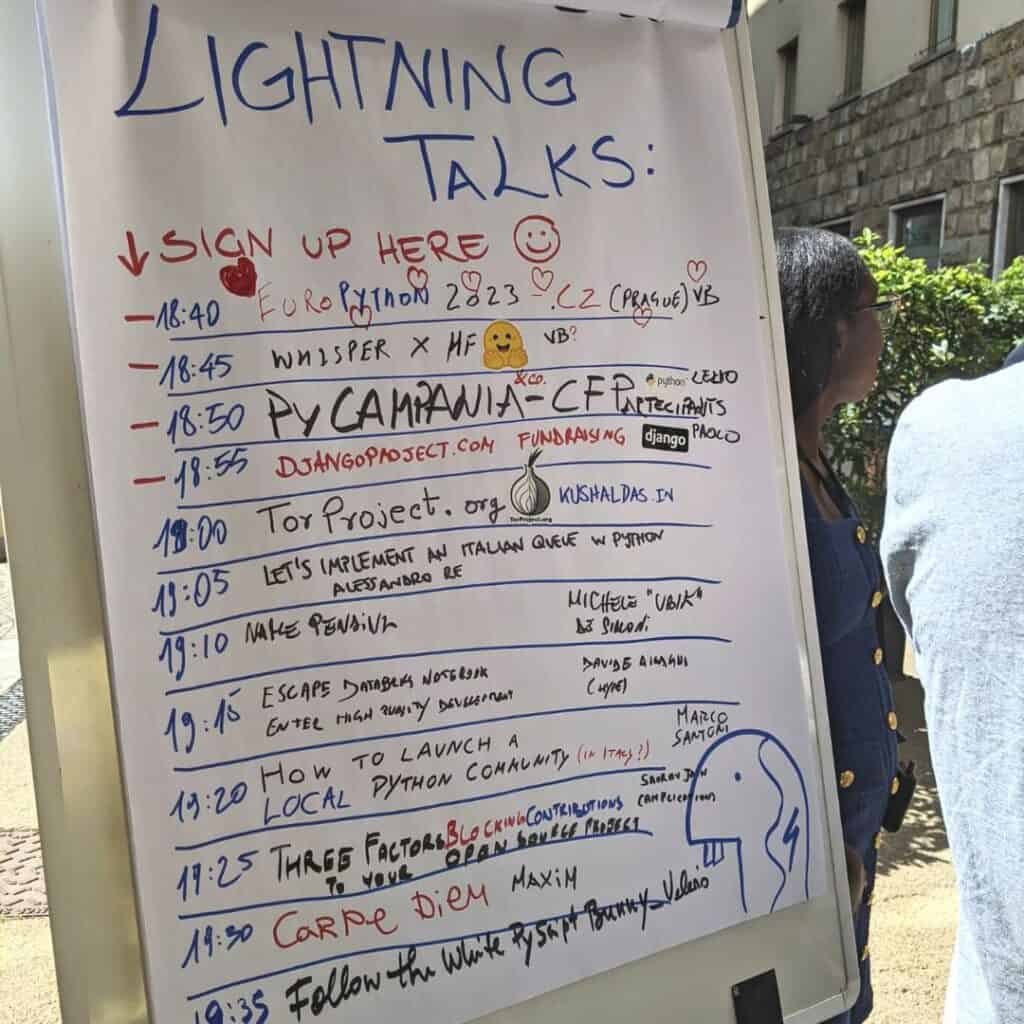 LIGHTNING
TALKS:
↓ SIGN UP HERE
18:40 EUROPYTHON 2023 - .CZ (PRAGUE) VB
18:45 WHISPER X HF VB?
18:50 PYCAMPANIA & CO. - CFPARTECIPANTS python
18:55 DJANGOPROJECT.COM FUNDRAISING django PAOLO
19:00 TorProject.org TorProject.org KUSHALDAS.IN
19:05 LET'S IMPLEMENT AN ITALIAN QUEUE W PYTHON
ALESSANDRO RE
19:10 NAME MICHELE "UBIK"
DE SIMONI
19:15 ESCAPE NOTEBOOK DAVIDE
ENTER HIGH QUALITY DEVELOPMENT (HYPE)
19:20 HOW TO LAUNCH A MARCO
SANTONI
LOCAL PYTHON COMMUNITY (IN ITALY?)
SAURAV JAIN
19:25 THREE FACTORS BLOCKING CONTRIBUTIONS
TO YOUR OPEN SOURCE PROJECT
19:30 CARPE DIEM MAXIM
19:35 Follow the White PyScript Bunny - Valerio